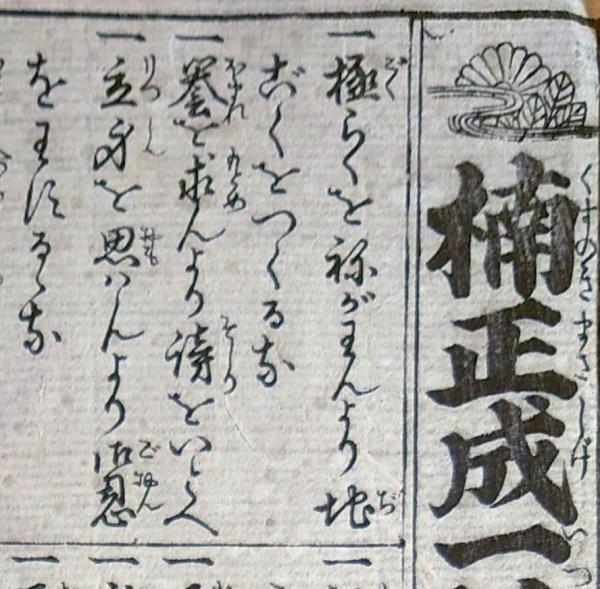 くすのきまさしげ
楠正成一
一極らくをねがわんより地
ごくをつくるな
一誉を求んより謗をいとへ
一立身を思ハんより御恩
をわするゝな